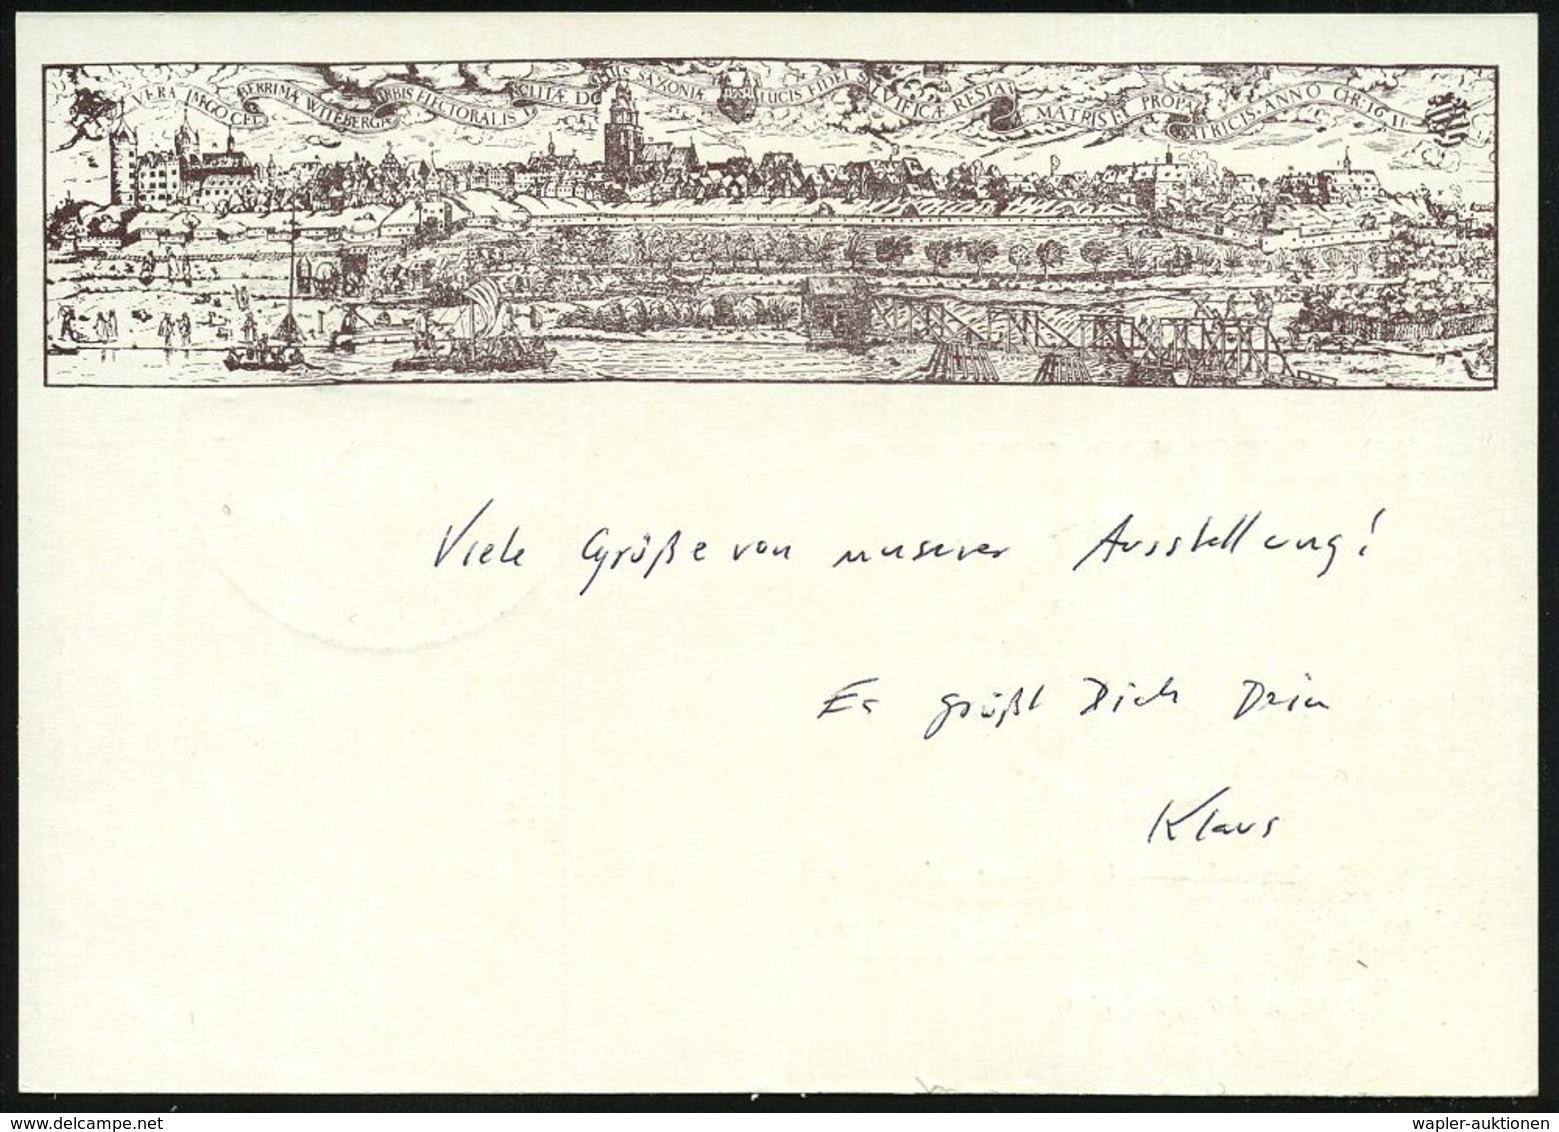 VERA IMAGO CEL EBERRIMÆ WITEBERGÆ URBIS ELECTORALIS SAXONIÆ LUCIS FIDEI SALVIFICÆ RESTAU MATRIS ET PROPA ANNO CHR. 1611
Viele Grüße von unserer Ausstellung!
Es grüßt Dich Dein
Klaus
wapler-auktionen